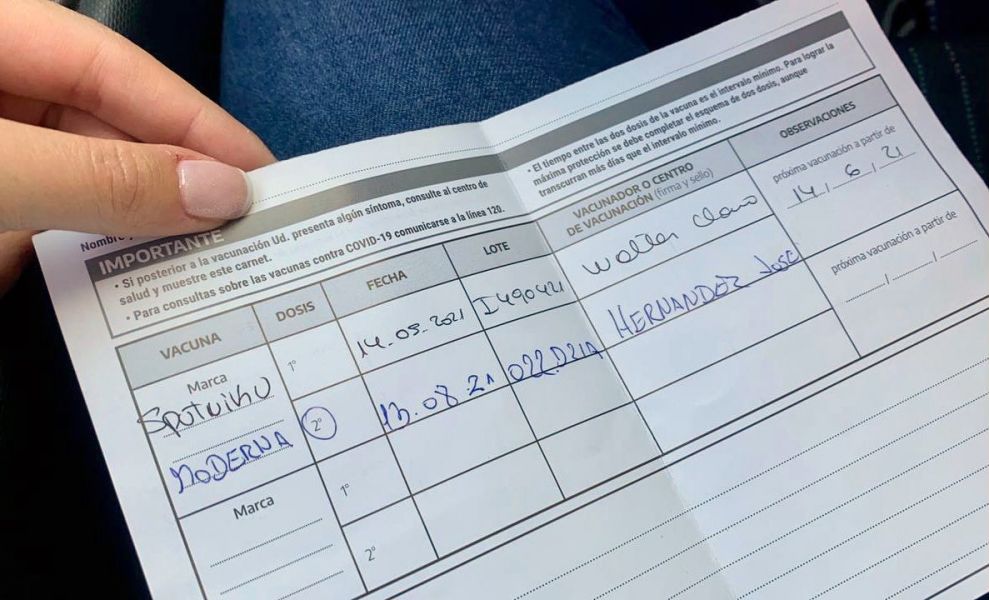 Nombre
IMPORTANTE
• Si posterior a la vacunación Ud. presenta algún síntoma, consulte al centro de
salud y muestre este carnet.
• Para consultas sobre las vacunas contra COVID-19 comunicarse a la línea 120.
• El tiempo entre las dos dosis de la vacuna es el intervalo mínimo. Para lograr la
máxima protección se debe completar el esquema de dos dosis, aunque
transcurran más días que el intervalo mínimo.
VACUNA DOSIS FECHA LOTE VACUNADOR O CENTRO
DE VACUNACIÓN (firma y sello) OBSERVACIONES
Marca
Sputnik V 1° 14.05.2021 I490421 Walter próxima vacunación a partir de
14/6/21
MODERNA 2° 13.08.21 022D21A HERNANDEZ José próxima vacunación a partir de
Marca
1°
2°